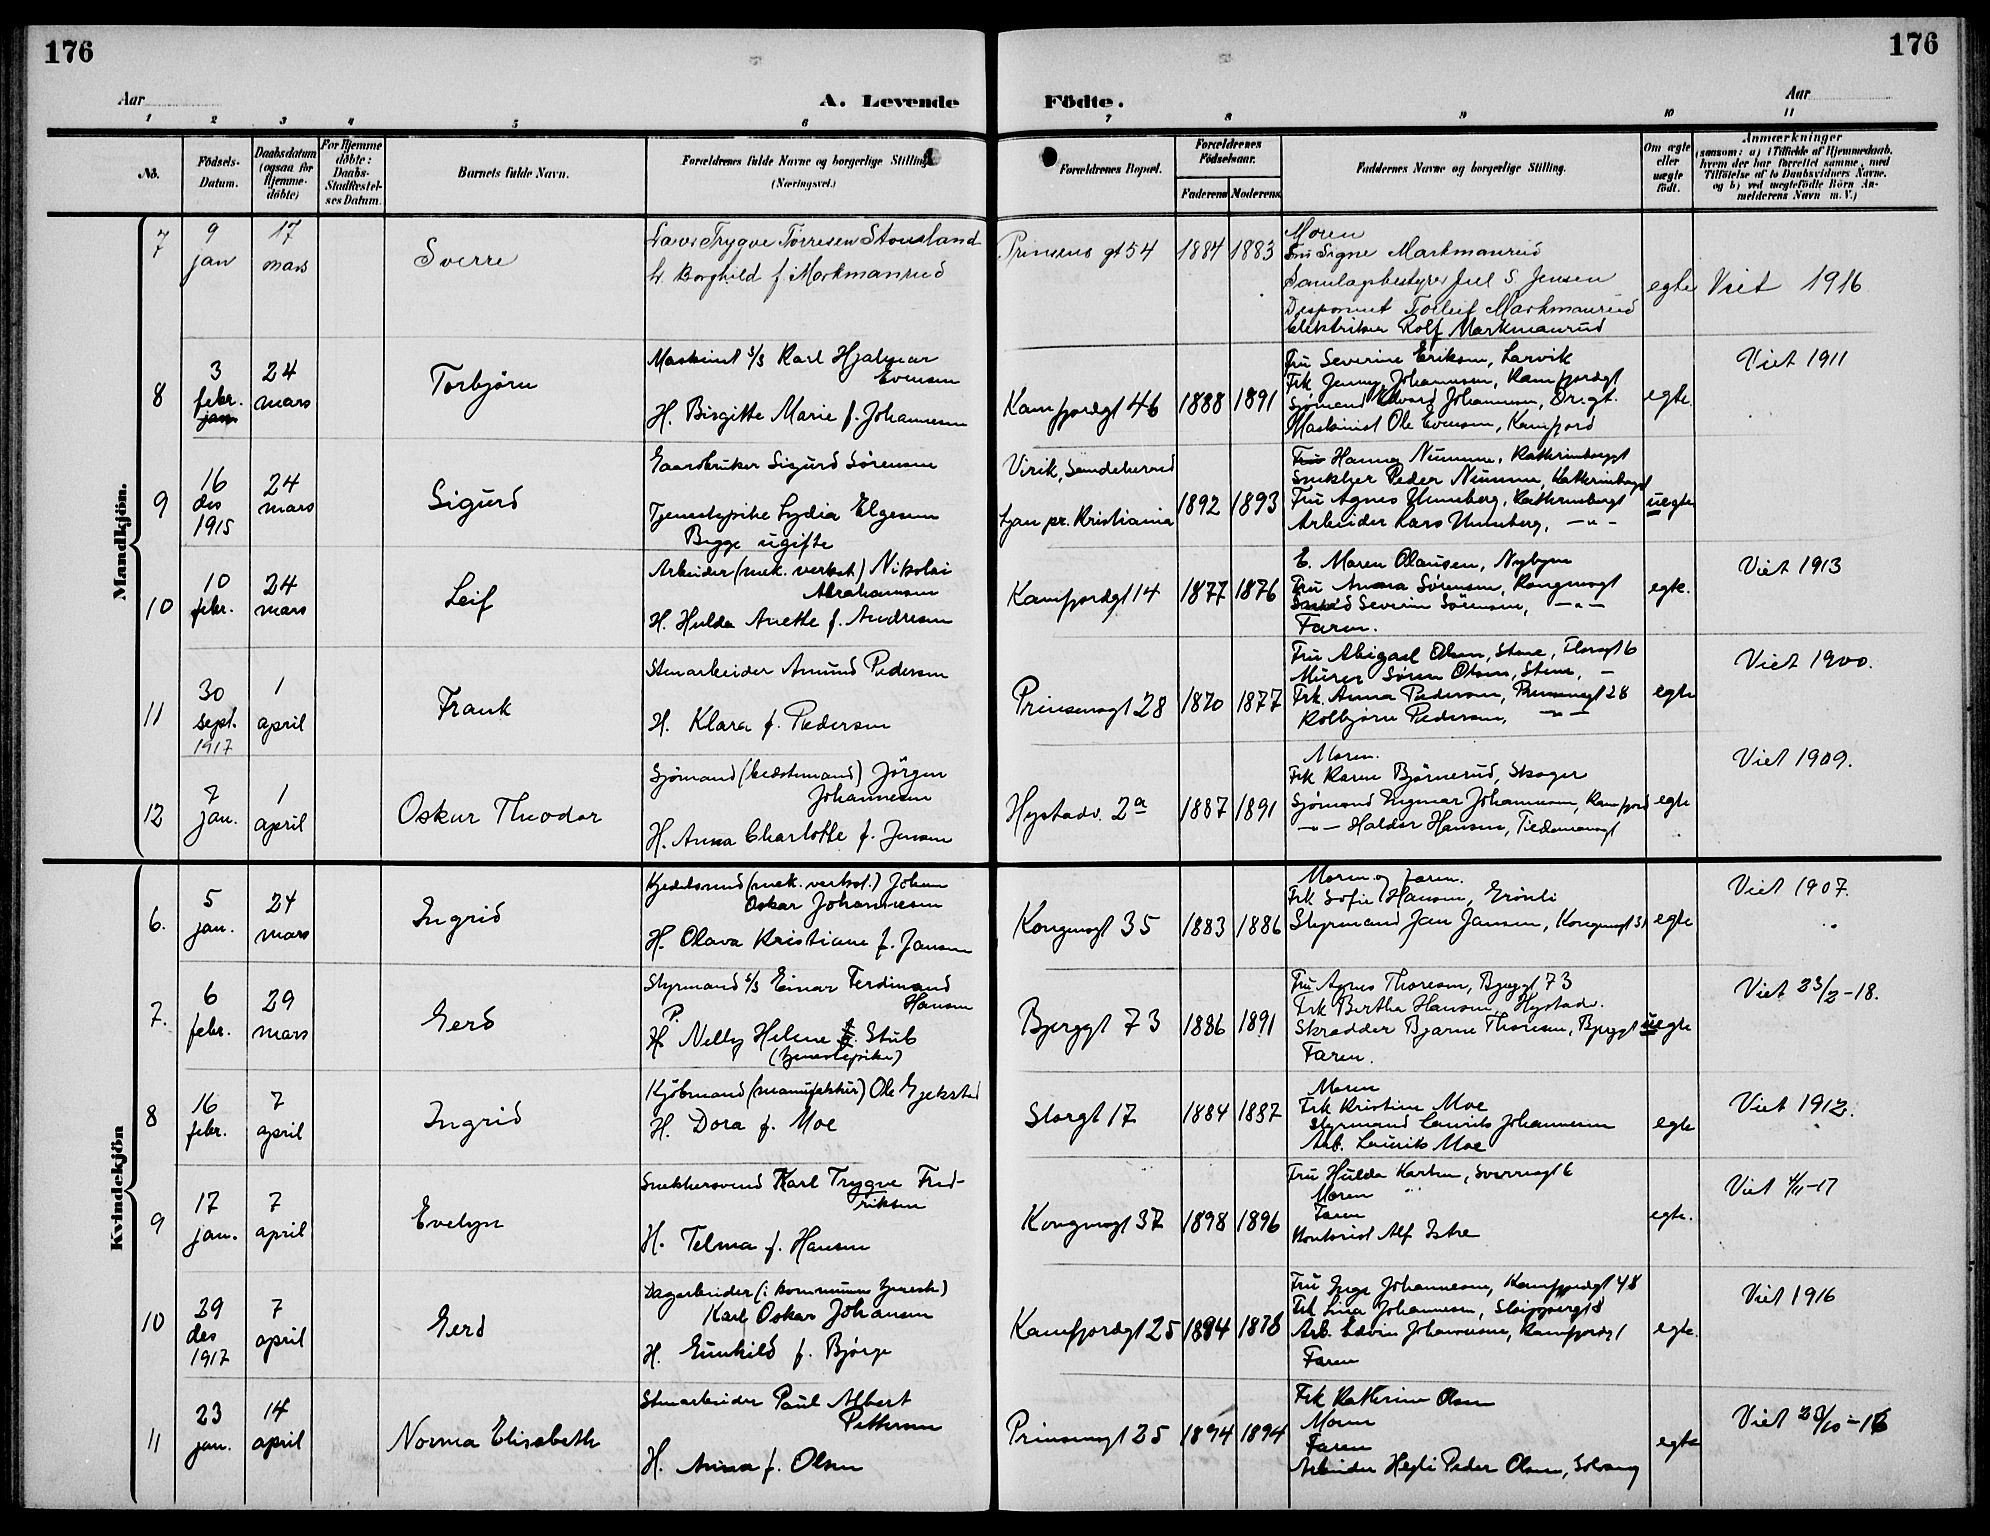 176
176
Aar
A. Levende
Födte.
Aar
1 2 3 4 5 6 7 8 9 10 11
No.
Födsels-Datum.
Daabsdatum (ogsaa for Hjemmedöbte)
For Hjemmedöbte: Daabs-Stadfæstelses Datum.
Barnets fulde Navn.
Forældrenes fulde Navne og borgerlige Stilling
(Næringsvei.)
Forældrenes Bopæl.
Forældrenes Födselsaar.
Faderens Moderens
Faddernes Navne og borgerlige Stilling.
Om ægte eller uægte födt.
Anmærkninger
(saasom: a) i Tilfælde af Hjemmedaab, hvem der har forrettet samme, med Tilföielse af to Daabsvidners Navne, og b) ved uægtefödte Börn Anmelderens Navn m. V.)
Mandkjön.
7
9 jan
17 mars
Sverre
Trygve Torresen Stousland
H. Borghild f. Markmanrud
Prinsens gt 54
1884 1883
Moren
Fru Signe Markmanrud
Samlagsbestyrer Juel S. Jensen
Disponent Torleif Markmanrud
Elektriker Rolf Markmanrud
egte
Viet 1916
8
3 febr. jan
24 mars
Torbjørn
Maskinist s/s Karl Hjalmar
Evensen
H. Birgitte Marie f. Johannesen
Kamfjordgt 46
1888 1891
Fru Severine Eriksen, Larvik
Frk Jenny Johannesen, Kamfjordgt
Sjømand Edvard Johannesen, Dr.gt.
Maskinist Ole Evensen, Kamfjord
egte.
Viet 1911
9
16 des 1915
24 mars
Sigurd
Gaardbruker Sigurd Sørensen
Tjenestepike Lydia Elgesem
Begge ugifte
Virik, Sandeherred
Ljan pr. Kristiania
1892 1893
Fru Hanna Numme, Kathrineborggt
Snekker Peder Numme, Kathrineborgt
Fru Agnes Unneberg, Kathrineborgt
Arbeider Lars Unneberg, -"-
uegte
10
10 febr.
24 mars
Leif
Arbeider (mek. verkst) Nikolai
Abrahamsen
H. Hulda Anette f. Andresen
Kamfjordgt 14
1877 1876
E. Maren Olausen, Nybyen
Fru Anna Sørensen, Kongensgt
Smed Severin Sørensen, -"-
Faren.
egte.
Viet 1913
11
30 sept. 1917
1 april
Frank
Stenarbeider Amund Pedersen
H. Klara f. Pedersen
Prinsensgt 28
1870 1877
Fru Abigael Olsen, Stene, Florsgt 6
Murer Søren Olsen, Stene, -
Frk. Anna Pedersen, Prinsensgt 28
Kolbjørn Pedersen, -"-
egte
Viet 1900.
12
7 jan.
1 april
Oskar Theodor
Sjømand (bedstemand) Jørgen
Johannesen
H. Anna Charlotte f. Jensen
Hystadv. 2a
1887 1891
Moren.
Frk Karen Bjørnerud, Skoger
Sjømand Ingmar Johannesen, Kamfjord
-"- Haldor Hansen, Tidemansgt
egte
Viet 1909.
Kvindekjön
6.
5 jan.
24 mars
Ingrid
Kjedelsmed (mek. verkst.) Johan
Oskar Johannesen
H. Olava Kristiane f. Jansen
Kongensgt 35
1883 1886
Moren og faren.
Frk Sofie Hansen, Grønli
Styrmand Jan Jansen, Kongensgt 31
egte
Viet 1907.
7.
6 febr.
29 mars
Gerd
Styrmand s/s Einar Ferdinand
Hansen
P.
H. Nelly Helene f. Stub
(tjenestepike)
Bjerggt 73
1886 1891
Fru Agnes Thoresen, Bjerggt 73
Frk Bertha Hansen, Hystadv.
Skrædder Bjarne Thoresen, Bjerggt
Faren.
uegte
Viet 23/2-18.
8
16 febr.
7 april
Ingrid
Kjøbmand (manufaktur) Ole Gjekstad
H. Dora f. Moe
Storgt 17
1884 1887
Moren
Frk Kristine Moe
Styrmand Laurits Johannesen
Arb. Laurits Moe
egte
Viet 1912.
9
17 jan.
7 april
Evelyn
Snekkersvend Karl Trygve Fred-
riksen
H. Telma f. Hansen
Kongensgt 37
1898 1896
Fru Hulda Karlsen, Sverresgt 6
Moren
Faren
Kontorist Alf Istre
egte.
Viet 4/11-17
10
29 des 1917
7 april
Gerd
Dagarbeider (i kommunens tjeneste)
Karl Oskar Johansen
H. Gunhild f. Bjørge
Kamfjordgt 25
1894 1878
Fru Inga Johannesen, Kamfjordgt 48
Frk Lina Johannesen,
Arb. Edvin Johannesen, Kamfjordgt
Faren
egte.
Viet 1916
11
23 jan.
14 april
Norma Elisabeth
Stenarbeider Paul Albert
Pettersen
H. Anna f. Olsen
Prinsensgt 25
1894 1894
Frk Kathrine Olsen
Moren
Faren
Arbeider Hegli Peder Olsen, Solvang
egte
Viet 28/10-16